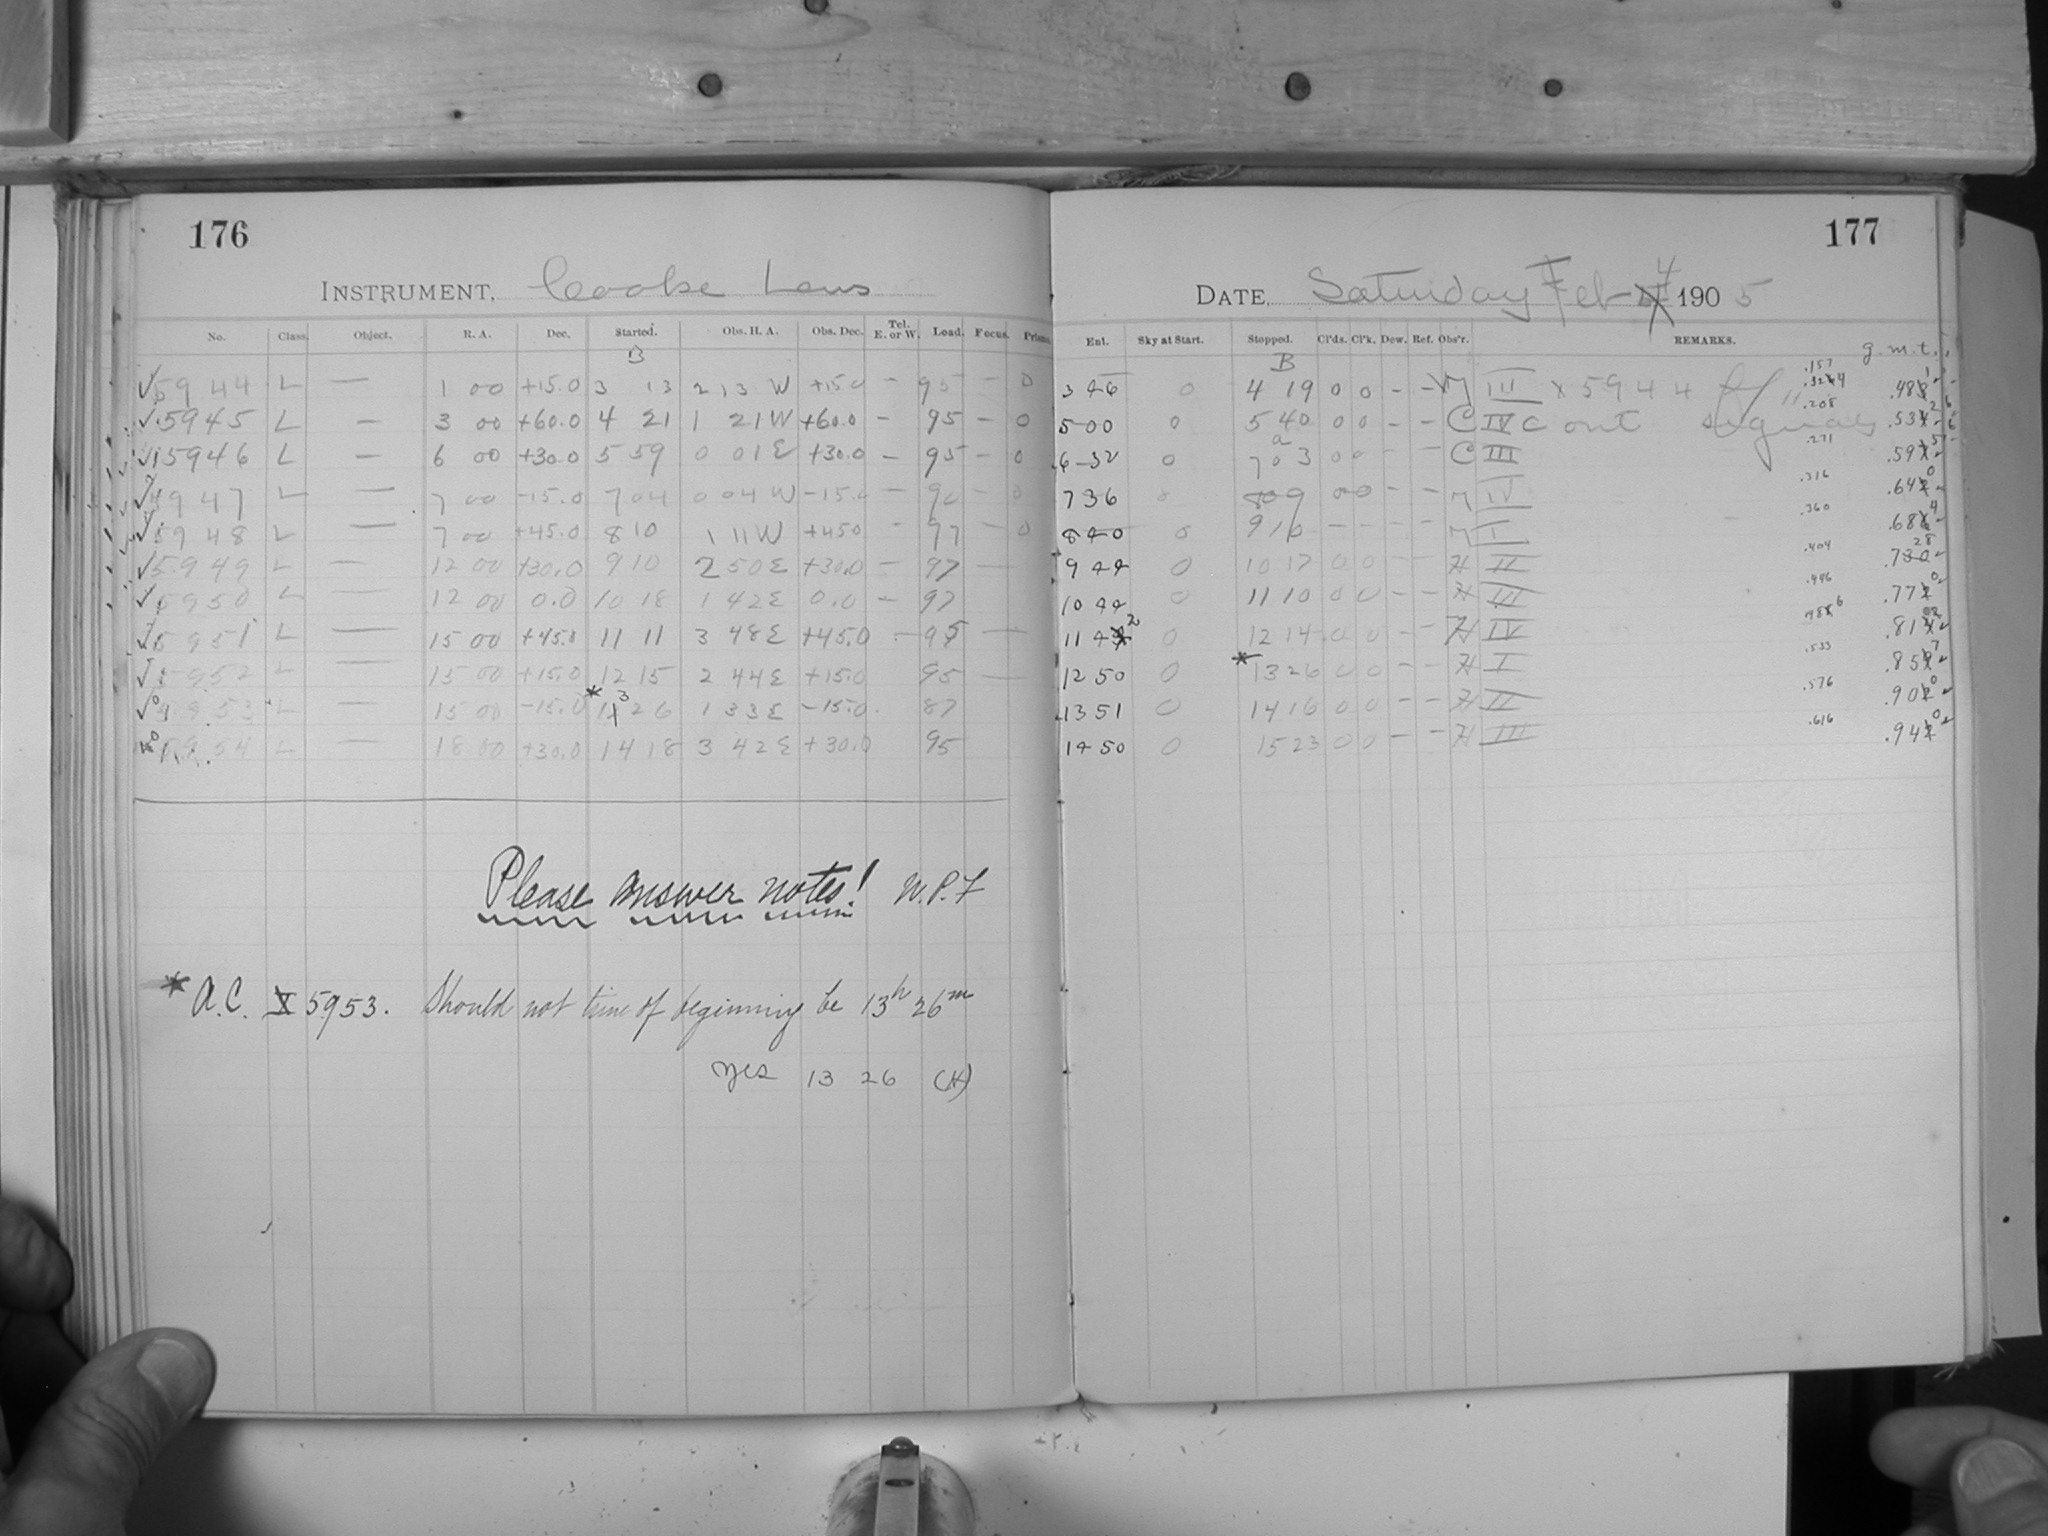 176
INSTRUMENT, Cooke Lens
No. Class. Object. R. A. Dec. Started. Obs. H. A. Obs. Dec. Tel. E. or W. Load. Focus. Prisms.
B
5944 L — 1 00 +15.0 3 13 2 13 W +15.0 — 95 — 0
5945 L — 3 00 +60.0 4 21 1 21 W +60.0 — 95 — 0
5946 L — 6 00 +30.0 5 59 0 01 E +30.0 — 95 — 0
5947 L — 7 00 -15.0 7 04 0 04 W -15.0 — 90 — 0
5948 L — 7 00 +45.0 8 10 1 11 W +45.0 — 97 — 0
5949 L — 12 00 +30.0 9 10 2 50 E +30.0 — 97 —
5950 L — 12 00 0.0 10 18 1 42 E 0.0 — 97
5951 L — 15 00 +45.0 11 11 3 48 E +45.0 — 95 —
5952 L — 15 00 +15.0 12 15 2 44 E +15.0 95 —
5953 L — 15 00 -15.0 * 13 26 1 33 E -15.0 87
5954 L — 18 00 +30.0 14 18 3 42 E +30.0 95
Please answer notes! W.P.F
* A.C. X 5953. Should not time of beginning be 13h 26m
yes 13 26 (H)
177
DATE, Saturday Feb 4 1905
Ent. Sky at Start. Stopped. Cl'ds. Cl'k. Dew. Ref. Obs'r. REMARKS. g.m.t.
B
346 0 4 19 0 0 - - M III X 5944 .157 .324 .48
500 0 5 40 0 0 - - C IV C out signals .208 .53
632 0 7 03 0 0 - - C III .271 .59
736 0 809 0 0 - - M IV .316 .640
840 0 910 - - - - M I .360 .684
944 0 10 17 0 0 - - H II .404 .728
1044 0 11 10 0 0 - - H III .446 .770
1142 0 12 14 0 0 - - H IV .486 .81
1250 0 * 13 26 0 0 - - H I .533 .857
1351 0 14 16 0 0 - - H II .576 .900
1450 0 15 23 0 0 - - H III .616 .940